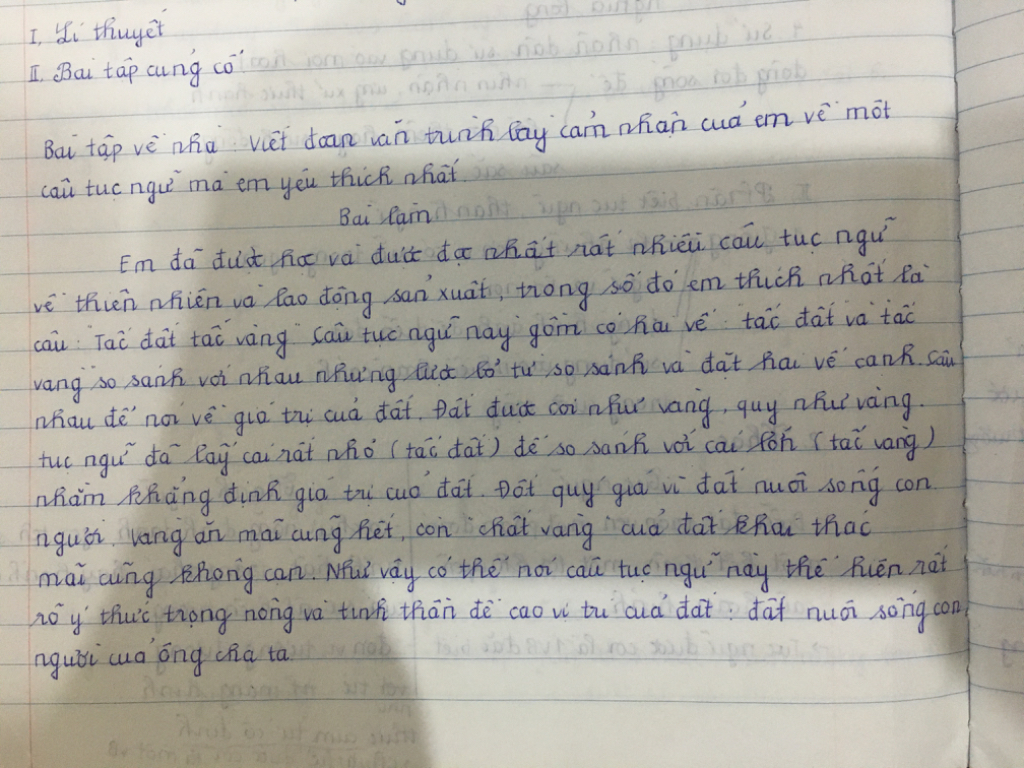 I, Lí thuyết
II. Bài tập củng cố
Bài tập về nhà : Viết đoạn văn trình bày cảm nhận của em về một
câu tục ngữ mà em yêu thích nhất.
Bài làm
Em đã được học và được đọc nhất rất nhiều câu tục ngữ
về thiên nhiên và lao động sản xuất, trong số đó em thích nhất là
câu : Tấc đất tấc vàng. Câu tục ngữ này gồm có hai vế : tấc đất và tấc
vàng so sánh với nhau nhưng lược bỏ từ so sánh và đặt hai vế cạnh. Câu
nhau để nói về giá trị của đất. Đất được coi như vàng, quý như vàng.
tục ngữ đã lấy cái rất nhỏ (tấc đất) để so sánh với cái lớn (tấc vàng)
nhằm khẳng định giá trị của đất. Đất quý giá vì đất nuôi sống con
người, vàng ăn mãi cũng hết, còn chất vàng của đất khai thác
mãi cũng không cạn. Như vậy có thể nói câu tục ngữ này thể hiện rất
rõ ý thức trọng nông và tinh thần đề cao vị trí của đất : đất nuôi sống con
người của ông cha ta.